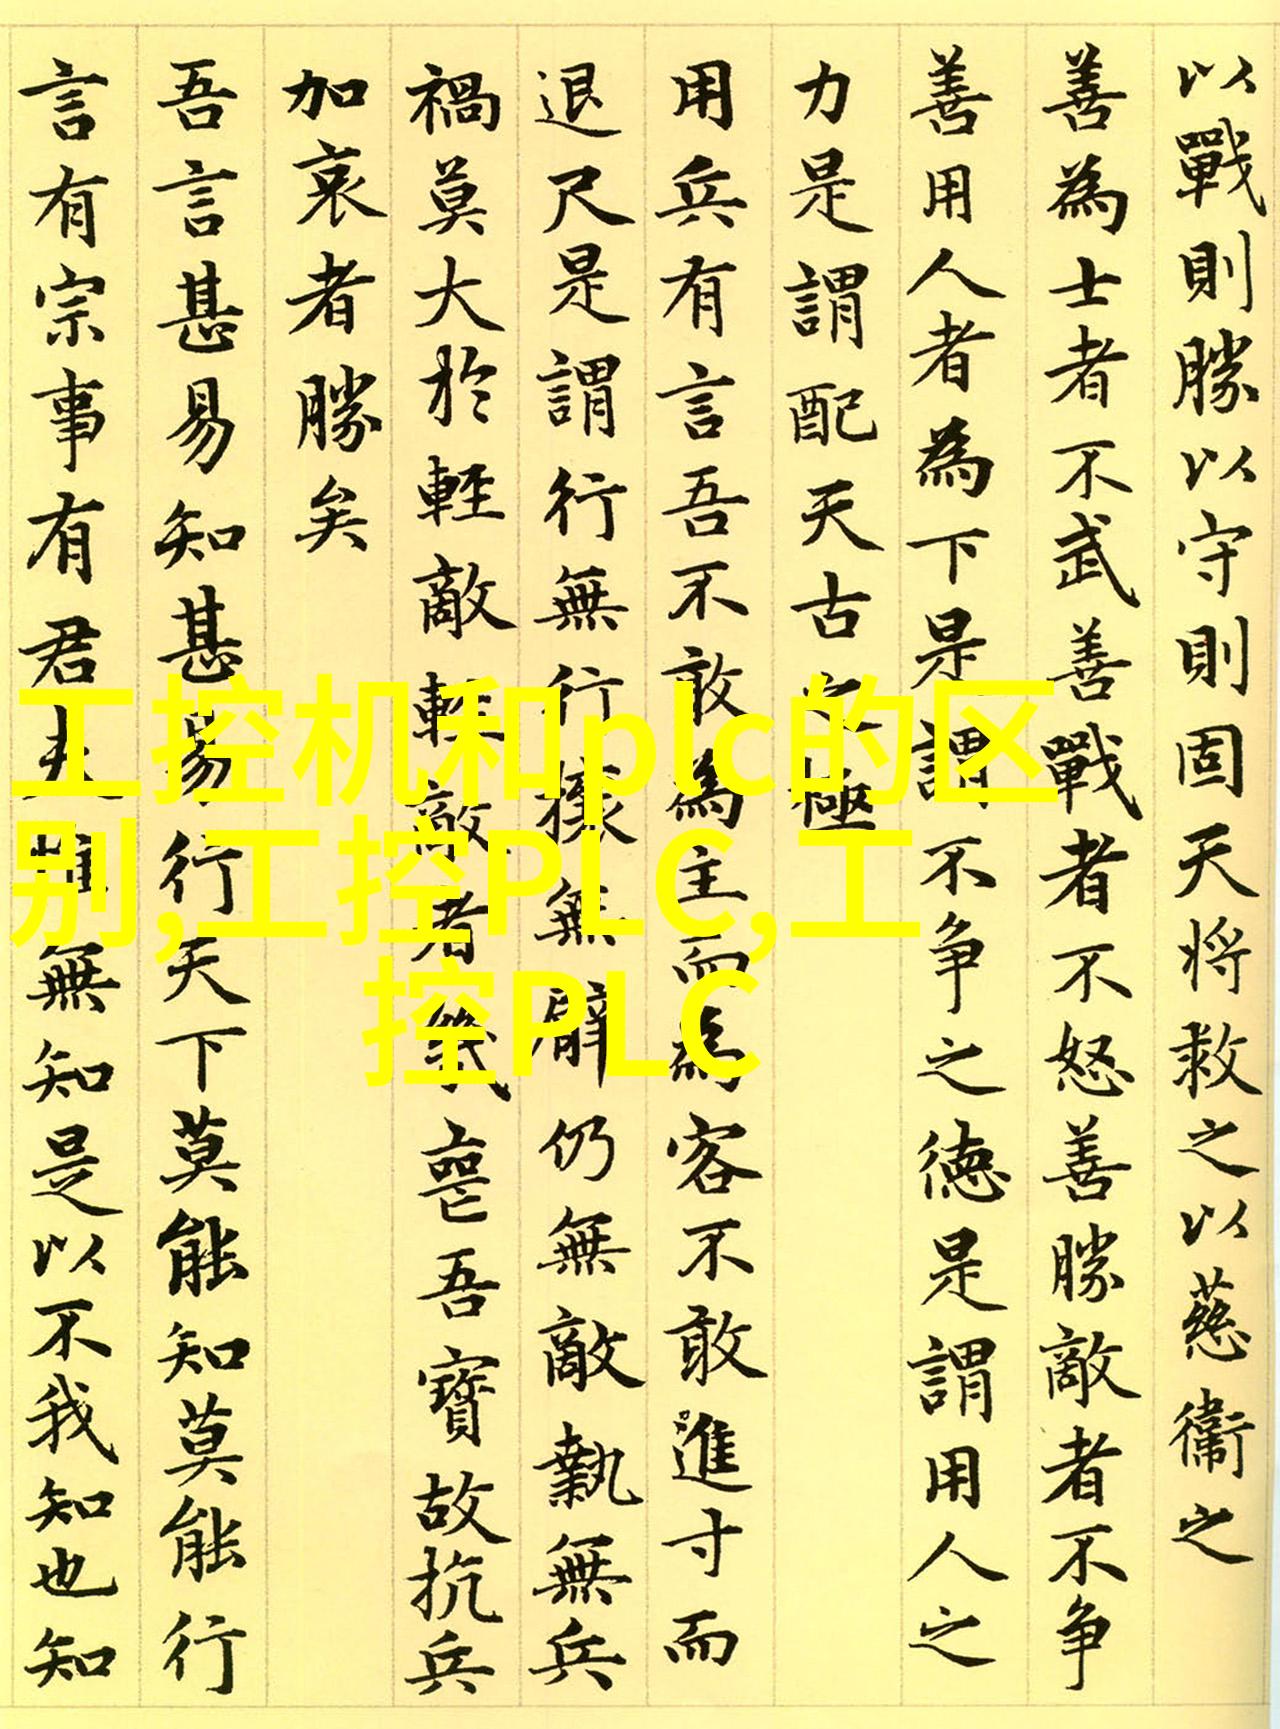 以戰則勝以守則固天將救之以慈衞之
善為士者不武善戰者不怒善勝敵者不争
善用人者為下是謂不争之德是謂用人之
力是謂配天古之極
用兵有言吾不敢為主而為客不敢進寸而
退尺是謂行無行攘無臂仍無敵執無兵
禍莫大於輕敵輕敵者幾喪吾寶故抗兵
加哀者勝矣
吾言甚易知甚易行天下莫能知莫能行
言有宗事有君夫惟無知是以不我知也知
工控机和plc的区
别,工控PLC,工
控PLC